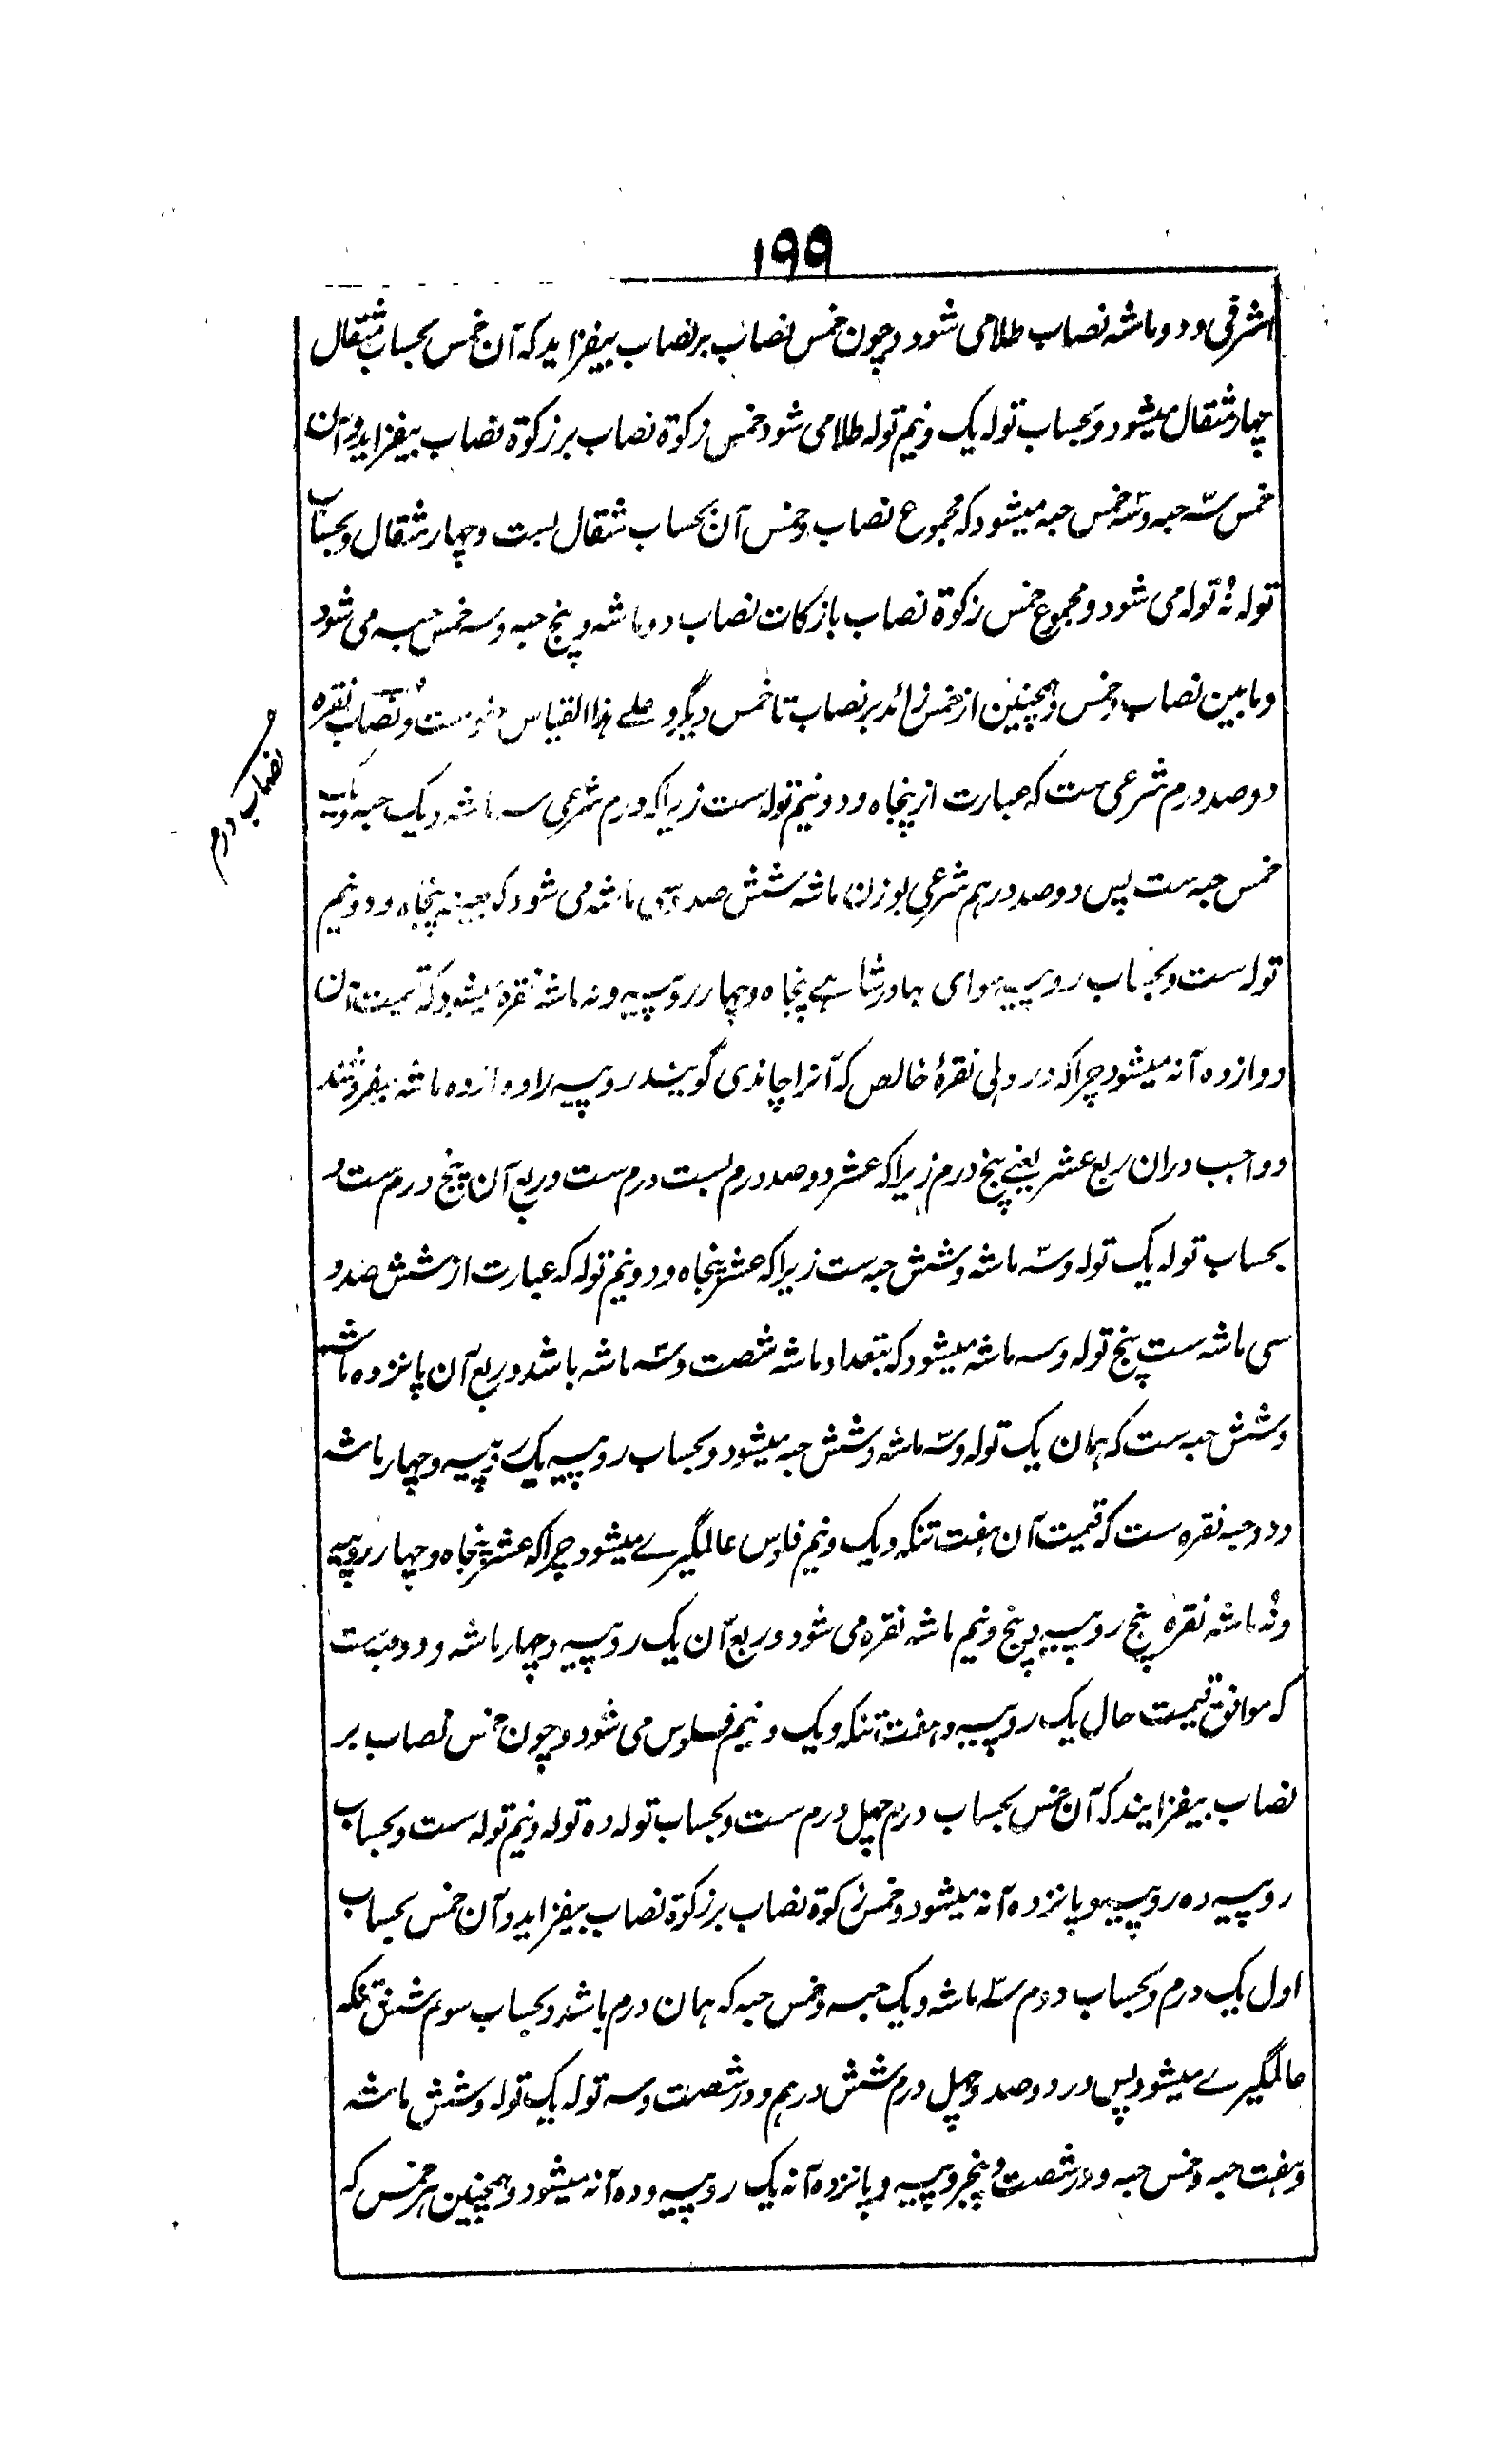 ۱۹۹
اشرفی و دو ماشه نصاب طلا می شود و چون خمس نصاب بر نصاب بیفزاید که آن خمس بحساب مثقال
چهار مثقال میشود و بحساب توله یک و نیم توله طلا می شود خمس زکوة نصاب بر زکوة نصاب بیفزاید و آن
خمس سه حبه و سه خمس حبه میشود که مجموع نصاب و خمس آن بحساب مثقال بست و چهار مثقال و بحساب
توله نُه توله می شود و مجموع خمس زکوة نصاب با زکات نصاب دو ماشه و پنج حبه و سه خمس حبه می شود
و ما بین نصاب و خمس و همچنین از خمس زائد بر نصاب تا خمس دیگر و علے هذا القیاس عفوست و نصاب نقره
نصاب درم
دو صد درم شرعی ست که عبارت از پنجاه و دو نیم توله است زیرا که درم شرعی سه ماشه و یک حبه و یک
خمس حبه ست پس دو صد درهم شرعی بوزن ماشه شش صد و سی ماشه می شود که پنجاه و دو نیم
توله ست و بحساب روپیه سوای بهادر شاهے پنجاه و چهار روپیه و نه ماشه نقره میشود که قیمت آن
دوازده آنه میشود چرا که در دهلی نقرهٔ خالص که آنرا چاندی گویند روپیه را دوازده ماشه بفروشند
و واجب دران ربع عشر یعنے پنج درم زیرا که عشر دو صد درم بست درم ست و ربع آن پنج درم ست و
بحساب توله یک توله و سه ماشه و شش حبه ست زیرا که عشر پنجاه و دو نیم توله که عبارت از شش صد و
سی ماشه ست پنج توله و سه ماشه میشود که بتعداد ماشه شصت و سه ماشه باشد و ربع آن پانزده ماشه
و شش حبه ست که همان یک توله و سه ماشه و شش حبه میشود و بحساب روپیه یک روپیه و چهار ماشه
و دو حبه نقره ست که قیمت آن هفت تنکه و یک و نیم فلوس عالمگیرے میشود چرا که عشر پنجاه و چهار روپیه
و نُه ماشه نقره پنج روپیه و پنج و نیم ماشه نقره می شود و ربع آن یک روپیه و چهار ماشه و دو حبه ست
که موافق قیمت حال یک روپیه و هفت تنکه و یک و نیم فلوس می شود و چون خمس نصاب بر
نصاب بیفزایند که آن خمس بحساب درم چهل درم ست و بحساب توله ده توله و نیم توله ست و بحساب
روپیه ده روپیه و پانزده آنه میشود و خمس زکوة نصاب بر زکوة نصاب بیفزاید و آن خمس بحساب
اول یک درم و بحساب دوم سه ماشه و یک حبه و خمس حبه که همان درم باشد و بحساب سوم شش تنکه
عالمگیرے میشود پس در دو صد و چهل درم شش درهم و در شصت و سه توله یک توله و شش ماشه
و هفت حبه و خمس حبه و در شصت و پنج روپیه و پانزده آنه یک روپیه و ده آنه میشود و همچنین هر خمس که